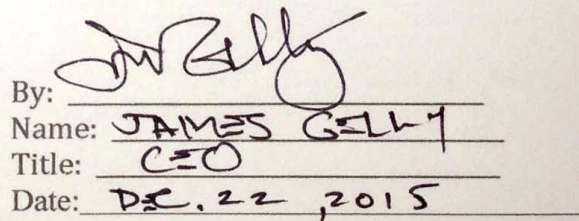 By:
Name: JAMES GELLY
Title: CEO
Date: DEC. 22, 2015